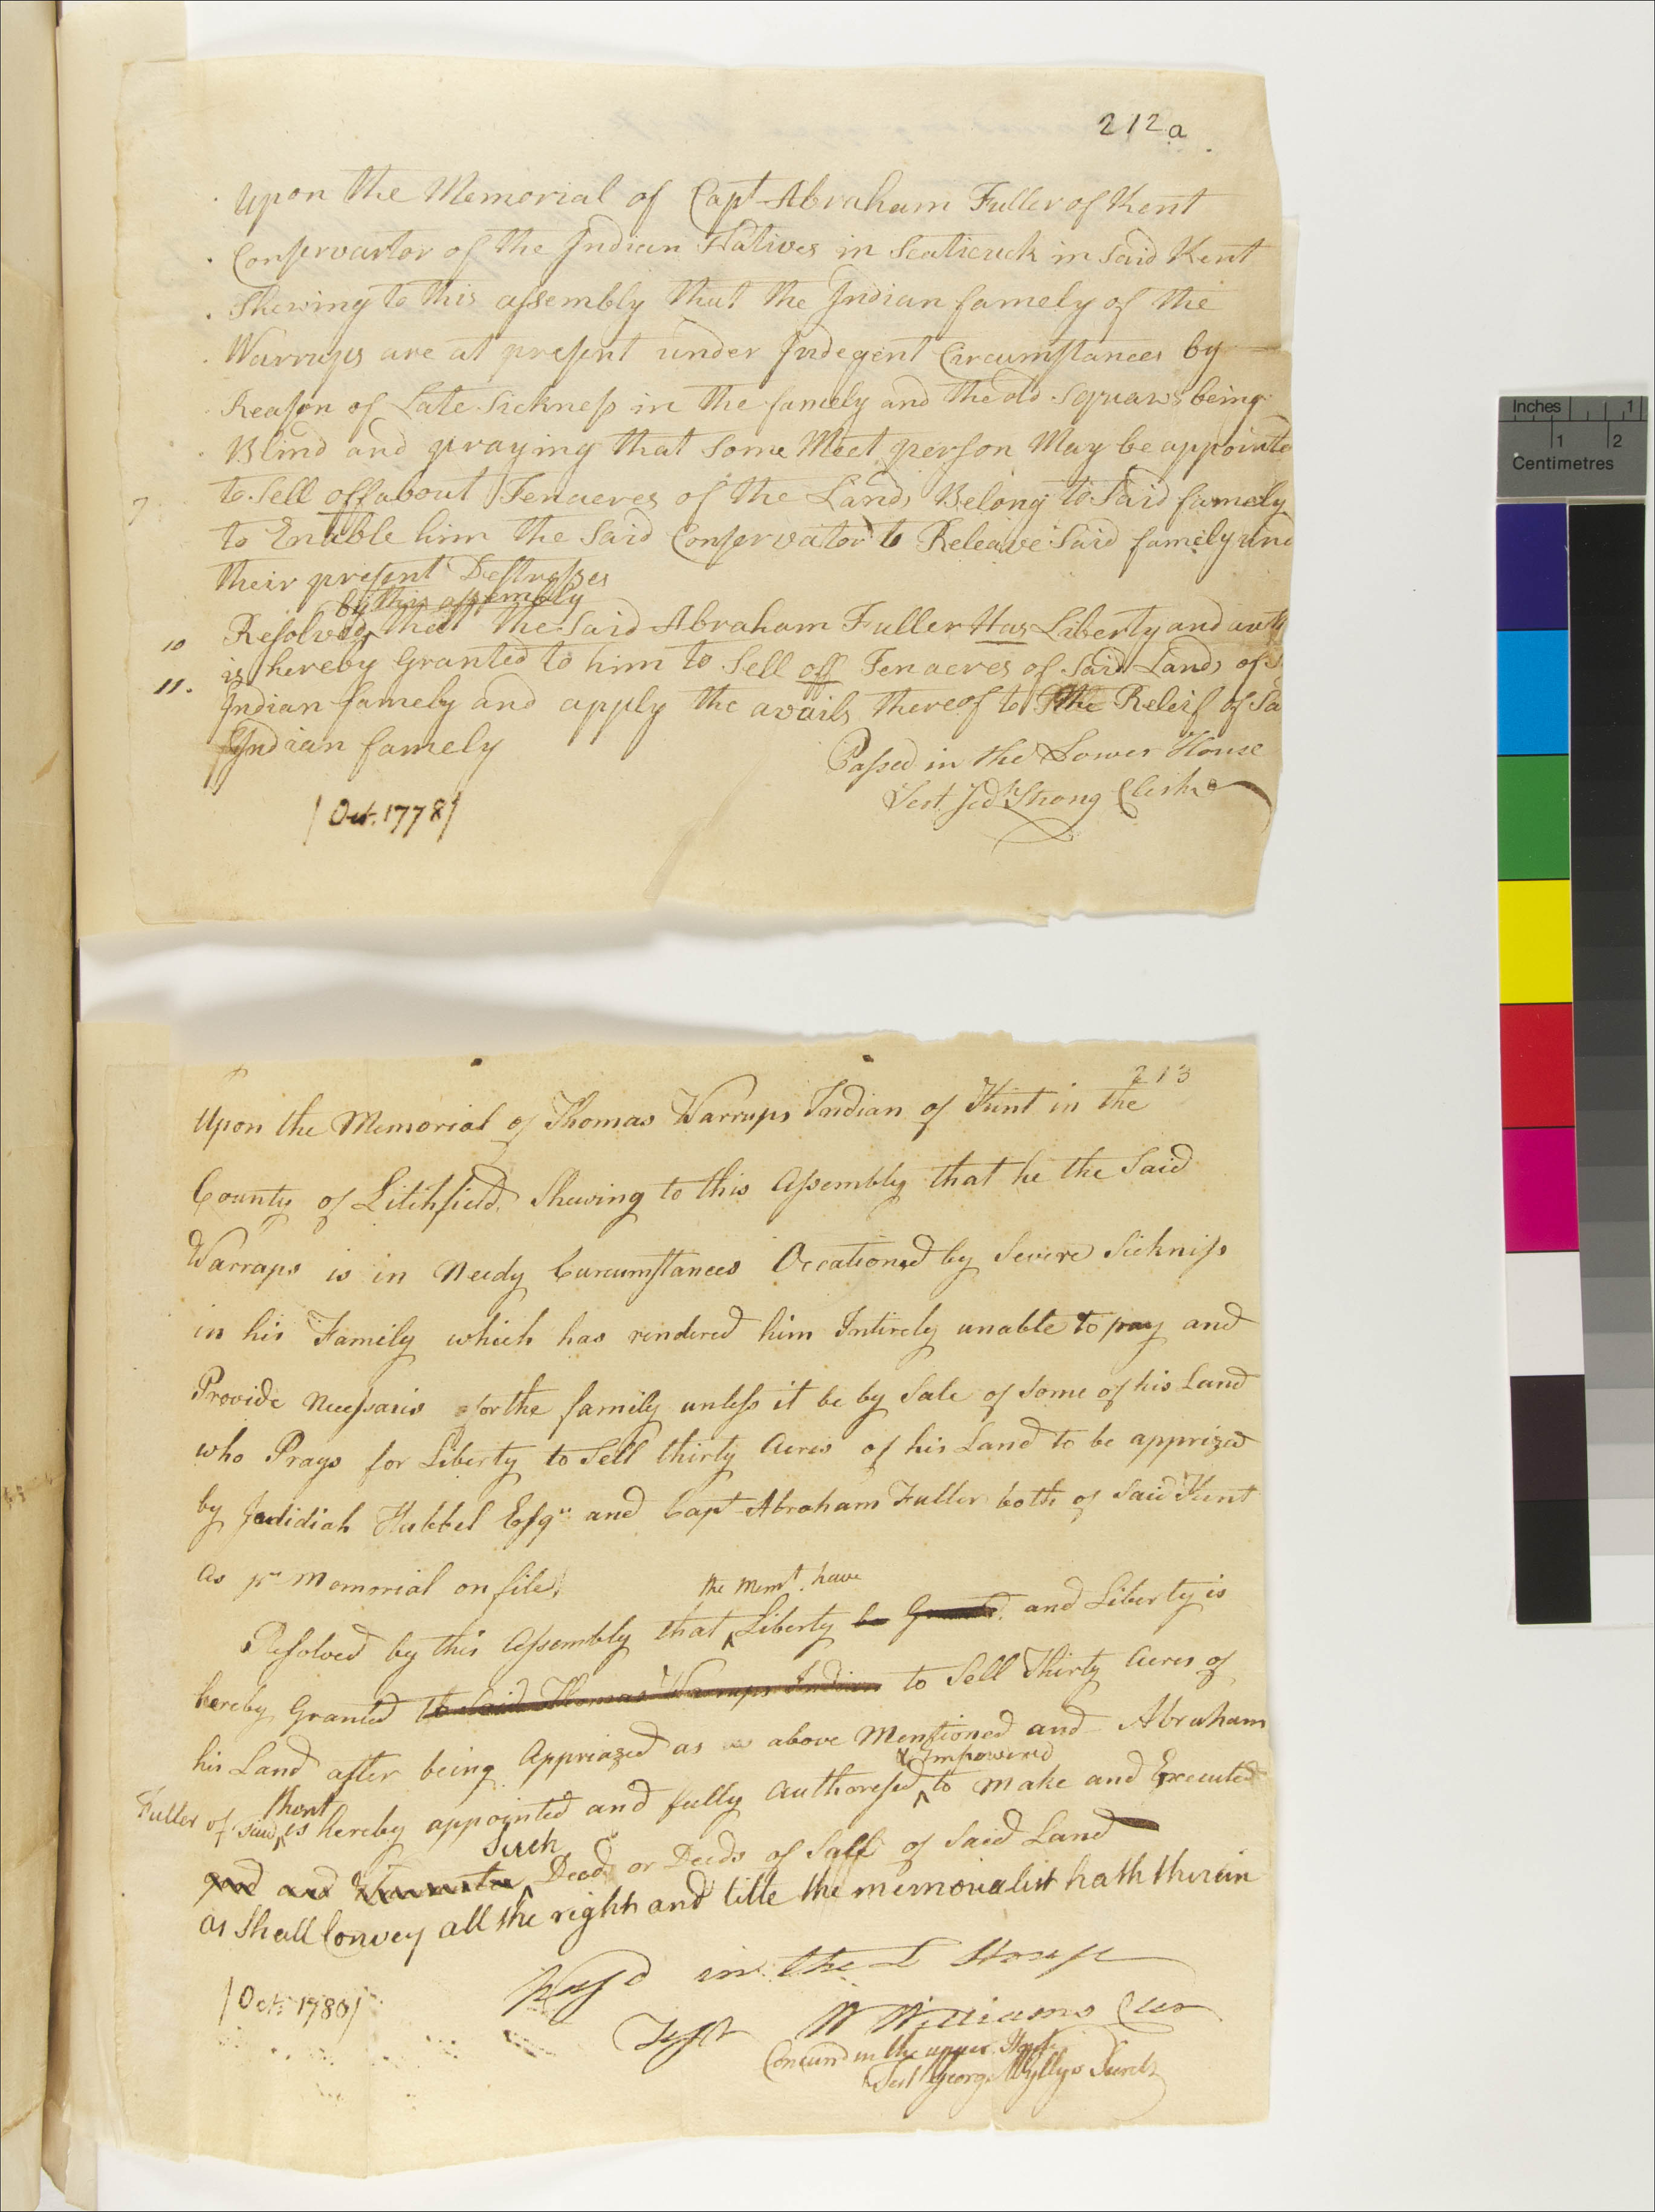 212a
Upon the Memorial of Capt Abraham Fuller of Kent
Conservartor of the Indian Natives in Scaticuck in Said Kent
Shewing to this assembly that the Indian famely of the
Warrups are at present under Indegent Circumstances by
Reason of Late Sickness in the famely and the old Squaws being
Blind and praying that Some Meet person May be appointe
7 to Sell off about Tenacres of the Land Belong to Said famely
to Enable him the Said Conservator to Releave Said famely und
their present Destresses
by this assembly
10 Resolved that the Said Abraham Fuller Has Liberty and auth
11. is hereby Granted to him to Sell off Tenacres of Said Land of S
Indian famely and apply the avails thereof to the Releif of Sa
Indian famely
Passed in the Lower House
Test Jedh Strong Clerk
/ Oct. 1778/
213
Upon the Memorial of Thomas Warrups Indian of Kent in the
County of Litchfield, Shewing to this Assembly that he the Said
Warrups is in Needy Curcumstances Occationed by Severe Sickniss
in his Family which has rendered him Intirely unable to pay and
Provide Necessaris for the family unless it be by Sale of Some of his Land
who Prays for Liberty to Sell thirty Acres of his Land to be apprized
by Jedidiah Hubbel Esqr and Capt Abraham Fuller both of Said Kent
as pr Memorial on file,
the Memt. have
Resolved by this Assembly that Liberty be Granted and Liberty is
hereby Granted to Said Thomas Warrups Indian to Sell Thirty Acres of
his Land after being Appriazed as above Mentioned and Abraham
& Impowered
Fuller of Said Kent is hereby appointed and fully Authoresed to Make and Executed
Such
good and Deed or Deeds of Sale of Said Land
as Shall Convey all the right and title the memorialist hath therein
Passd in the L House
Test W Williams Cler
Concurd in the upper House
Test George Wyllys Secrety
/Oct. 1780/